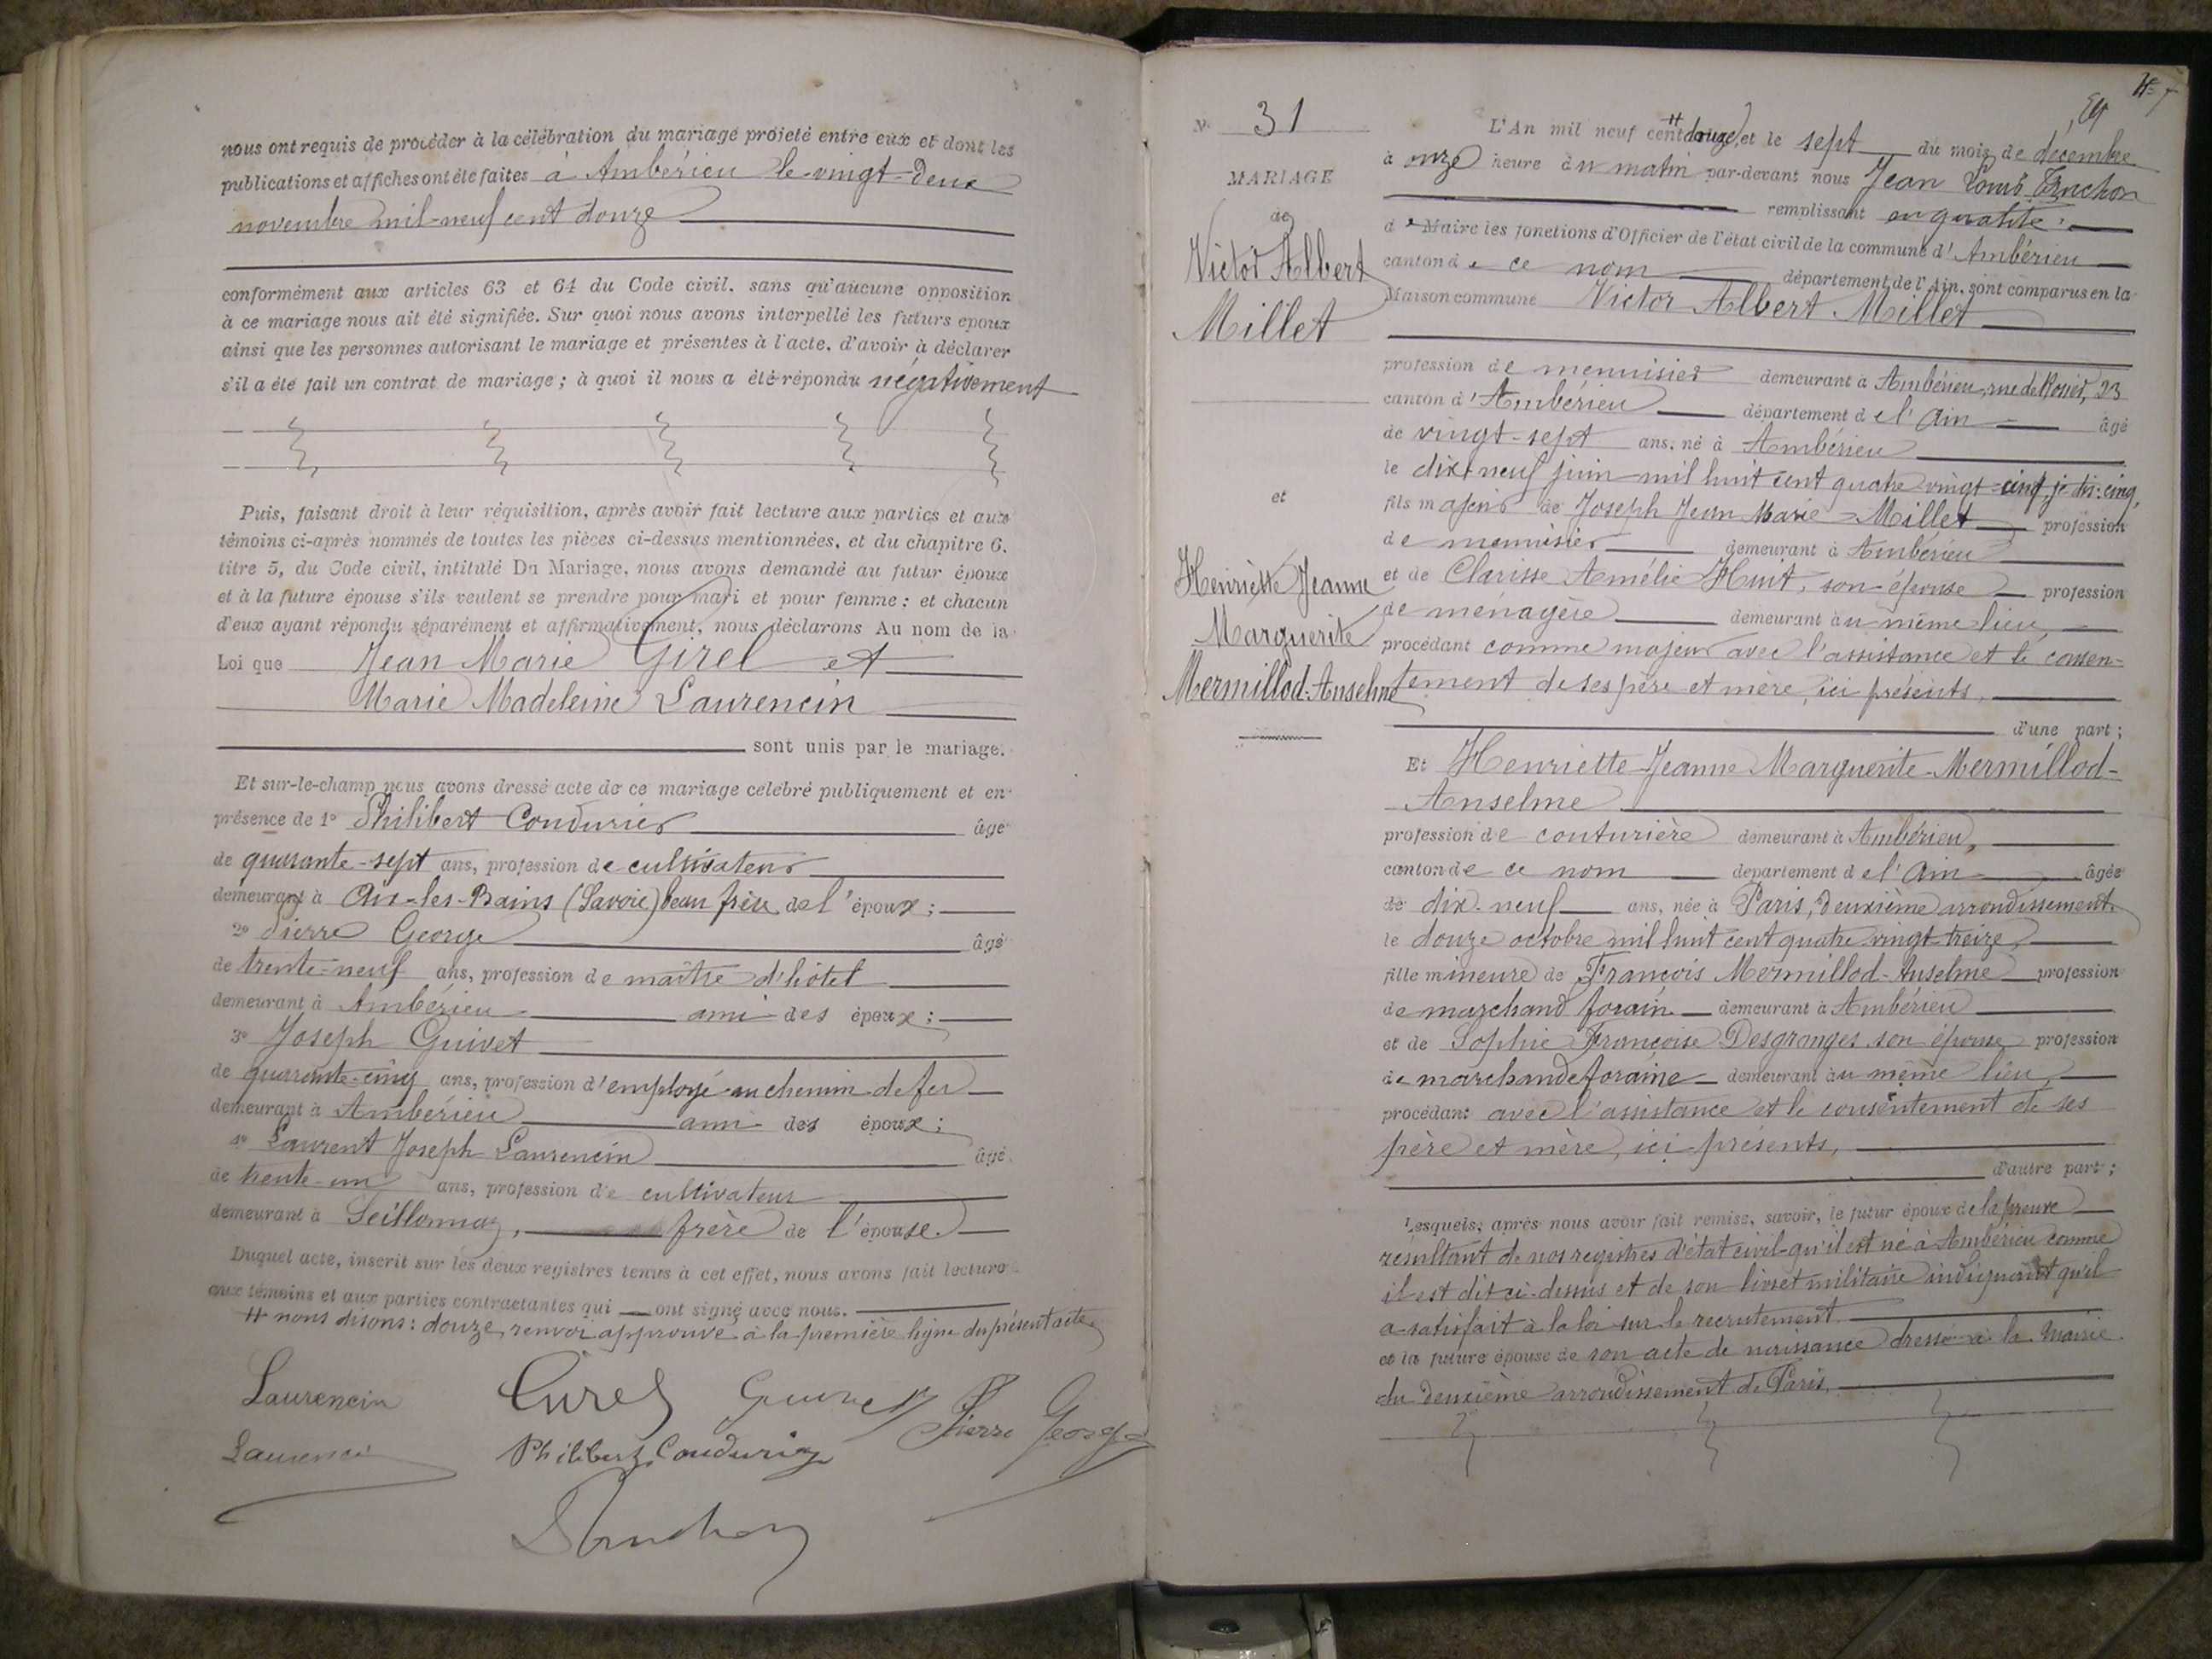 nous ont requis de procéder à la célébration du mariage projeté entre eux et dont les
publications et affiches ont été faites à Ambérieu le vingt-deux
novembre mil-neuf cent douze
conformément aux articles 63 et 64 du Code civil, sans qu'aucune opposition
à ce mariage nous ait été signifiée. Sur quoi nous avons interpellé les futurs époux
ainsi que les personnes autorisant le mariage et présentes à l'acte, d'avoir à déclarer
s'il a été fait un contrat de mariage ; à quoi il nous a été répondu négativement
Puis, faisant droit à leur réquisition, après avoir fait lecture aux parties et aux
témoins ci-après nommés de toutes les pièces ci-dessus mentionnées, et du chapitre 6,
titre 5, du Code civil, intitulé Du Mariage, nous avons demandé au futur époux
et à la future épouse s'ils veulent se prendre pour mari et pour femme ; et chacun
d'eux ayant répondu séparément et affirmativement, nous déclarons Au nom de la
Loi que Jean Marie Girel et
Marie Madeleine Laurencin
sont unis par le mariage.
Et sur-le-champ nous avons dressé acte de ce mariage célébré publiquement et en
présence de 1° Philibert Condurier âgé
de quarante-sept ans, profession de cultivateur
demeurant à Aix-les-Bains (Savoie) beau frère de l'époux ;
2° Pierre George âgé
de trente-neuf ans, profession de maître d'hôtel
demeurant à Ambérieu ami des époux ;
3° Joseph Guivet
de quarante-cinq ans, profession d'employé au chemin de fer
demeurant à Ambérieu ami des époux ;
4° Laurent Joseph Laurencin âgé
de trente-un ans, profession de cultivateur
demeurant à Seillonnaz, frère de l'épouse.
Duquel acte, inscrit sur les deux registres tenus à cet effet, nous avons fait lecture
aux témoins et aux parties contractantes qui ont signé avec nous.
# nous disons : douze, renvoi approuvé à la première ligne du présent acte
Laurencin Girel Guivet Pierre George
Laurencin Philibert Condurier
Truchon
N° 31
MARIAGE
de
Victor Albert
Millet
et
Henriette Jeanne
Marguerite
Mermillod-Anselme
L'An mil neuf cent # douze, et le sept du mois de décembre
à onze heure du matin par-devant nous Jean Louis Truchon
remplissant en qualité
de Maire les fonctions d'Officier de l'état civil de la commune d'Ambérieu
canton de ce nom département de l'Ain, sont comparus en la
Maison commune Victor Albert Millet
profession de menuisier demeurant à Ambérieu, rue de 23
canton d'Ambérieu département de l'Ain âgé
de vingt-sept ans, né à Ambérieu
le dix-neuf juin mil huit cent quatre vingt-cinq, je dis: cinq,
fils majeur de Joseph Jean Marie Millet profession
de menuisier demeurant à Ambérieu
et de Clarisse Amélie Huit, son épouse profession
de ménagère demeurant au même lieu,
procédant comme majeur avec l'assistance et le consen-
tement de ses père et mère, ici présents,
d'une part ;
Et Henriette Jeanne Marguerite Mermillod-
Anselme
profession de couturière demeurant à Ambérieu,
canton de ce nom département de l'Ain âgée
de dix-neuf ans, née à Paris, deuxième arrondissement
le douze octobre mil huit cent quatre vingt-treize
fille mineure de François Mermillod-Anselme profession
de marchand forain demeurant à Ambérieu
et de Sophie Françoise Desgranges son épouse profession
de marchande foraine demeurant au même lieu,
procédant avec l'assistance et le consentement de ses
père et mère, ici présents,
d'autre part ;
Lesquels, après nous avoir fait remise, savoir, le futur époux de la preuve
résultant de nos registres d'état civil qu'il est né à Ambérieu comme
il est dit ci-dessus et de son livret militaire indiquant qu'il
a satisfait à la loi sur le recrutement.
et la future épouse de son acte de naissance dressé à la Mairie
du deuxième arrondissement de Paris.